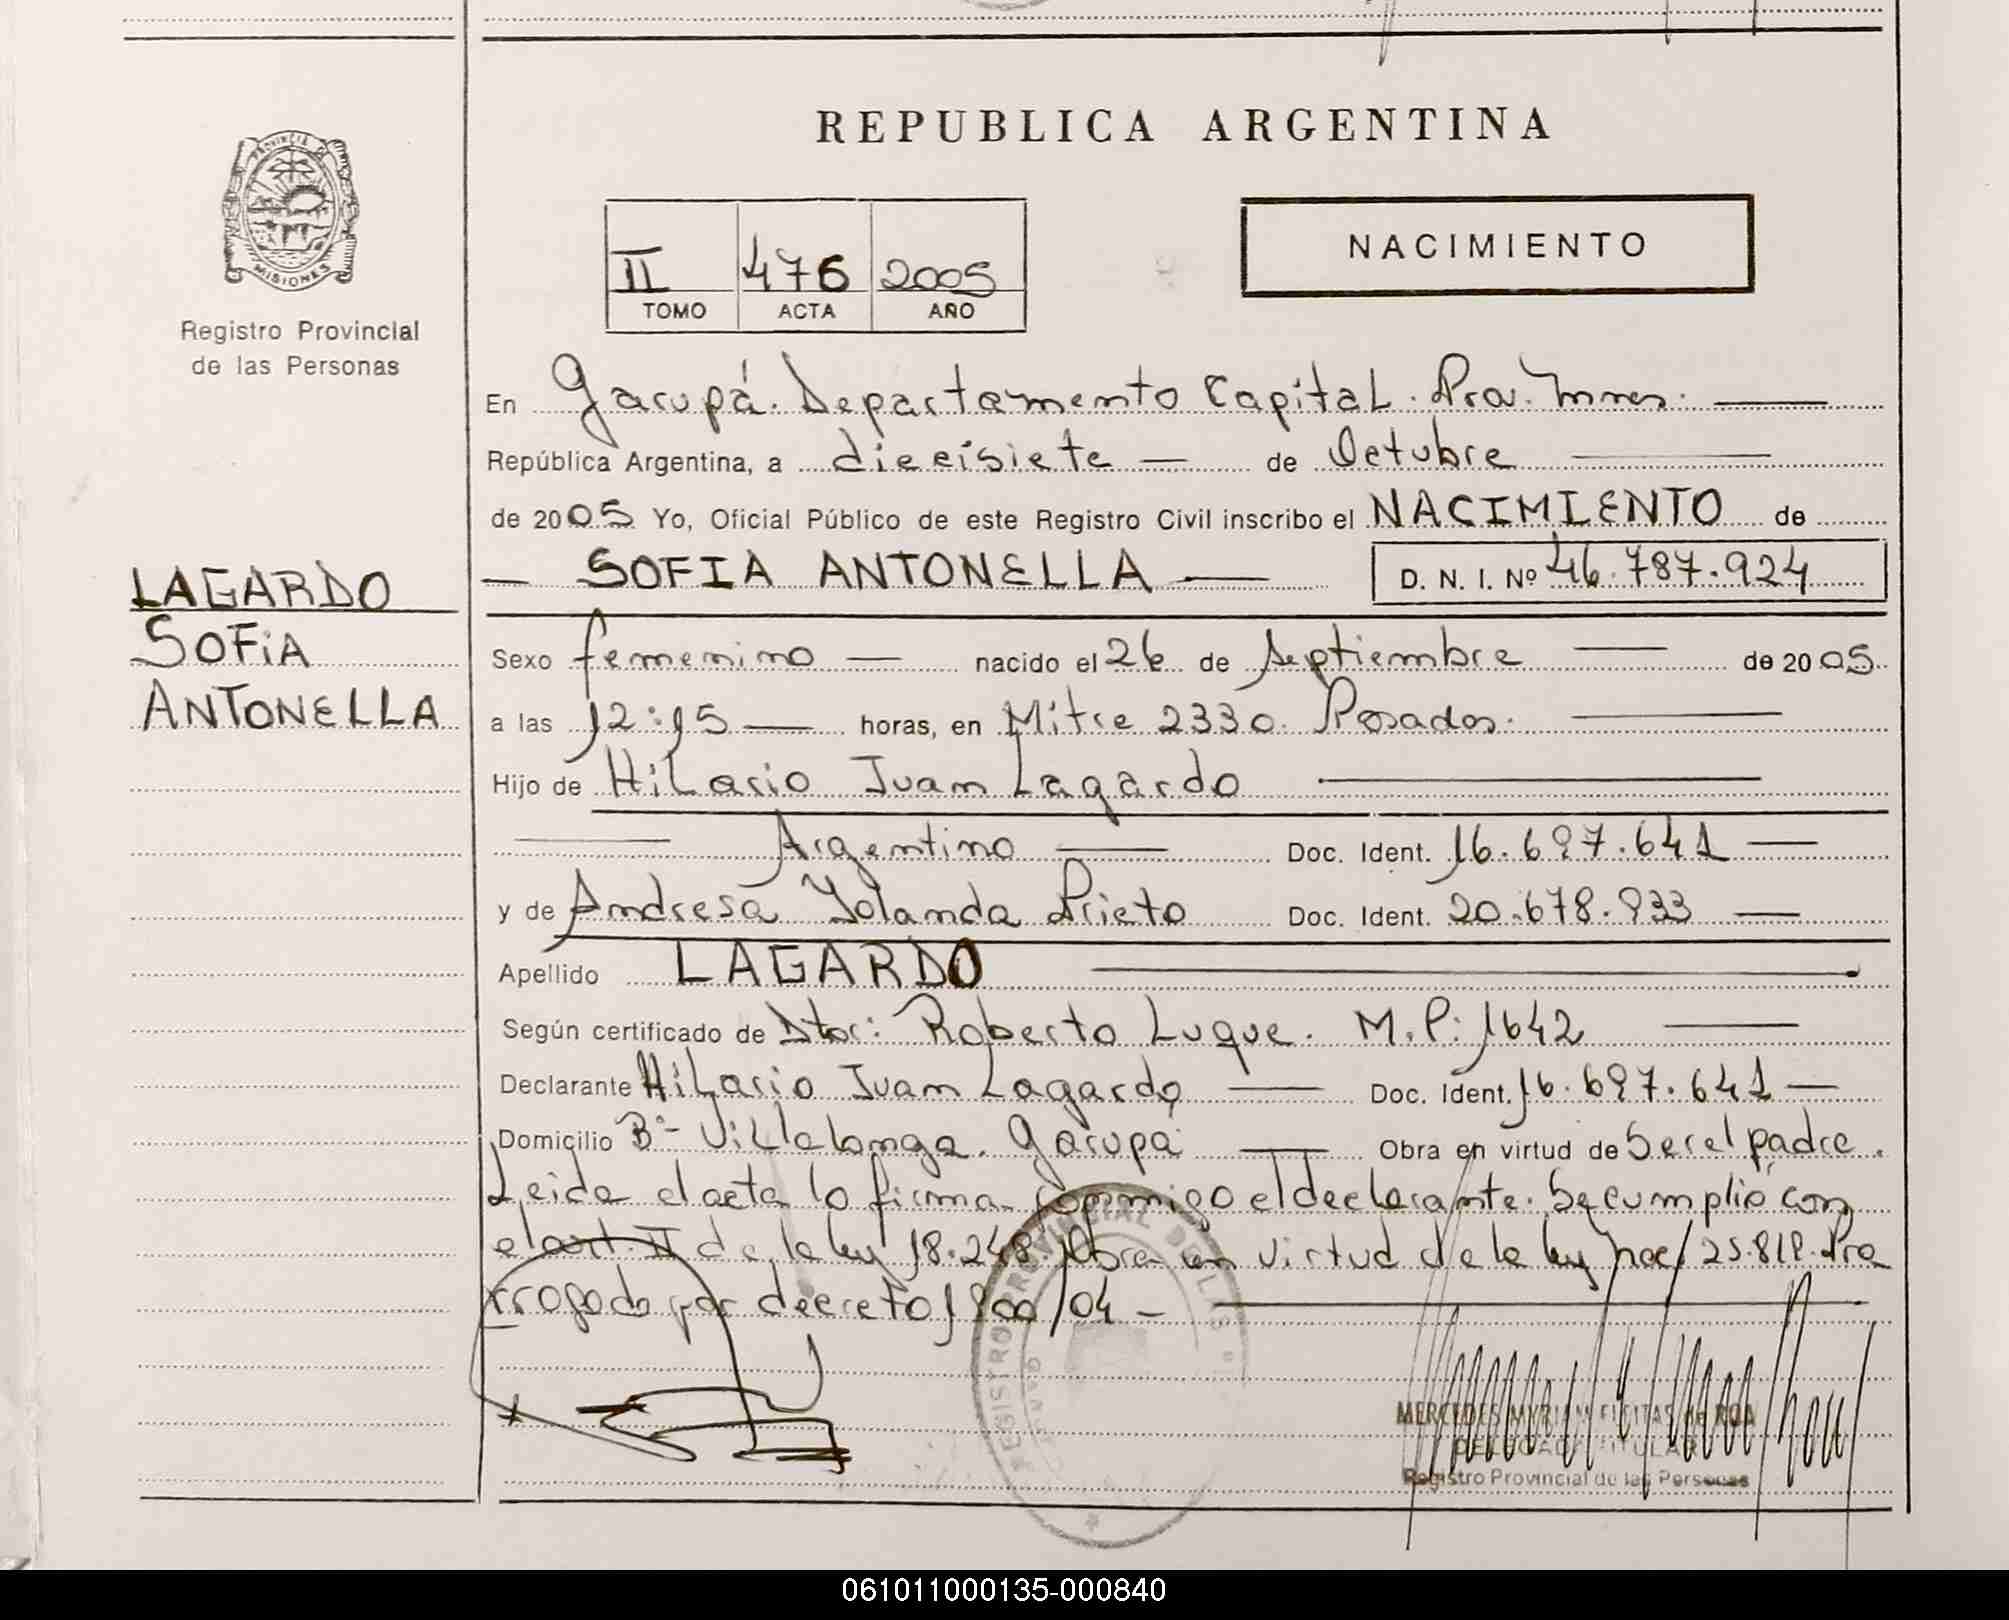 REPUBLICA ARGENTINA
PROVINCIA DE MISIONES
Registro Provincial
de las Personas
NACIMIENTO
II 476 2005
TOMO ACTA AÑO
En Garupá. Departamento Capital. Prov. Mnes.
República Argentina, a diecisiete de Octubre
de 2005 Yo, Oficial Público de este Registro Civil inscribo el NACIMIENTO de
SOFIA ANTONELLA D. N. I. Nº 46.787.924
LAGARDO
SOFiA
ANTONELLA
Sexo femenino nacido el 26 de Septiembre de 2005
a las 12:15 horas, en Mitre 2330. Posadas.
Hijo de Hilario Juan Lagardo
Argentino Doc. Ident. 16.697.641
y de Andresa Yolanda Prieto Doc. Ident. 20.678.933
Apellido LAGARDO
Según certificado de Dtor: Roberto Luque. M.P: 1642
Declarante Hilario Juan Lagardo Doc. Ident. 16.697.641
Domicilio Bº Villalonga. Garupá Obra en virtud de Ser el padre.
Leida el acta lo firma conmigo el declarante. Se cumplió con
el art. II de la ley 18.248. Obra en virtud de la ley nac/ 25.819. Pro
rrogado por decreto 1900/04 -
REGISTRO PROVINCIAL DE LAS
MERCEDES MYRIAM FLEITAS de ROA
DELEGADA TITULAR
Registro Provincial de las Personas
061011000135-000840